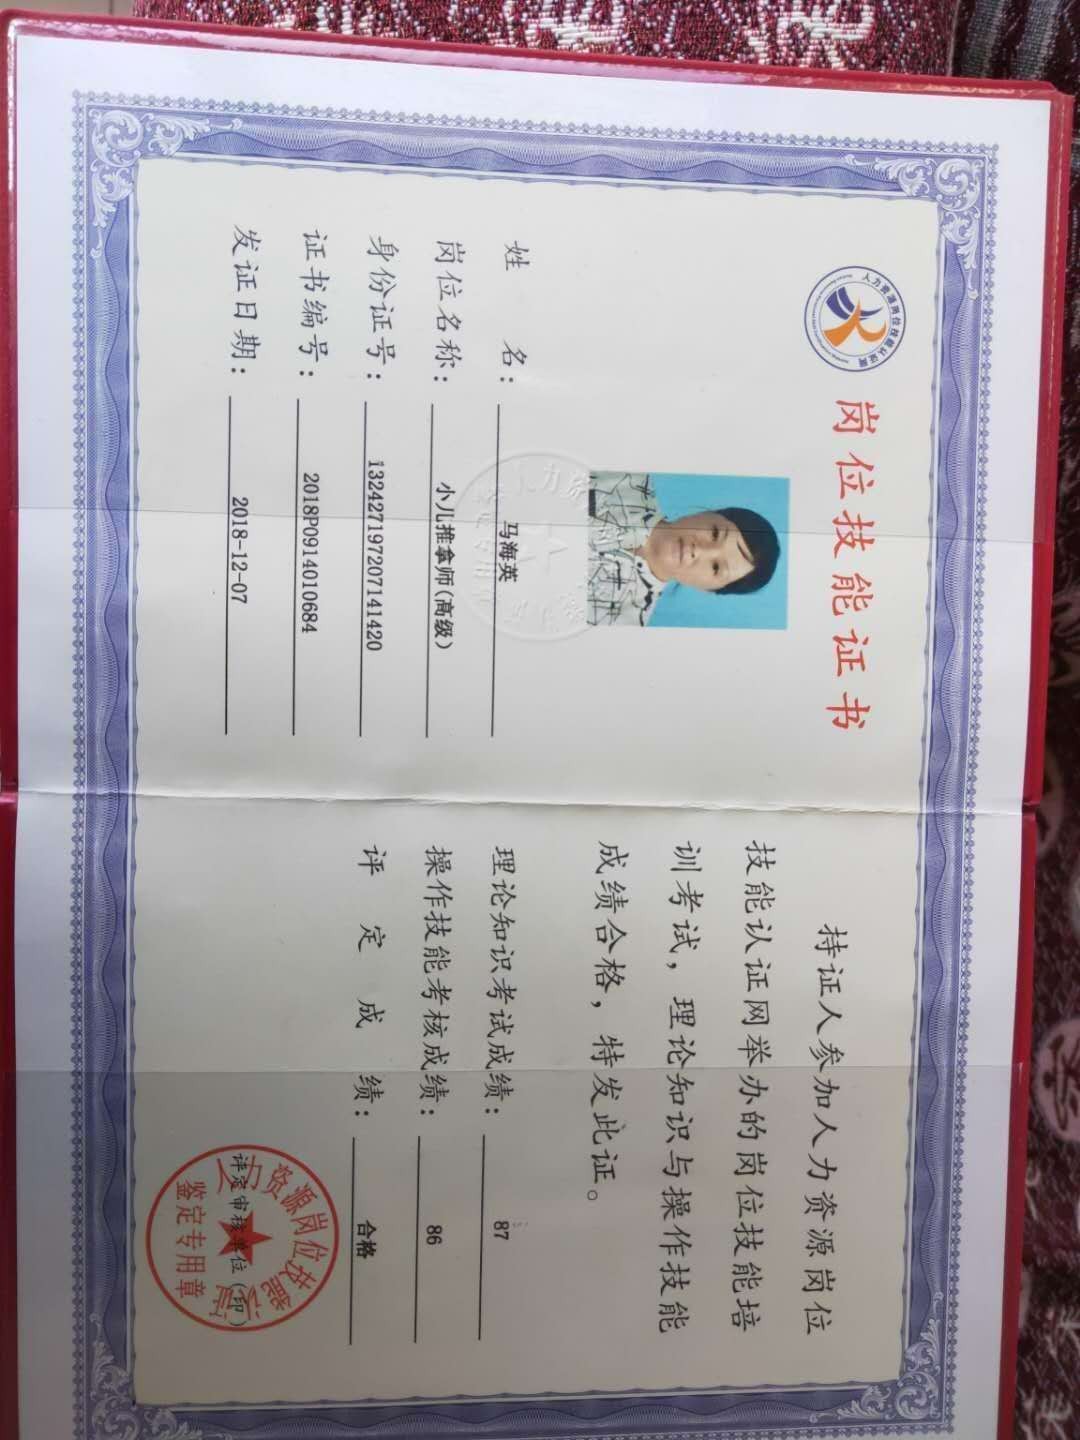 岗位技能证书
姓名：马海英
岗位名称：小儿推拿师(高级)
身份证号：132427197207141420
证书编号：2018P0914010684
发证日期：2018-12-07
持证人参加人力资源岗位
技能认证网举办的岗位技能培
训考试，理论知识与操作技能
成绩合格，特发此证。
理论知识考试成绩：87
操作技能考核成绩：86
评定成绩：合格
评定审核单位（印）
人力资源岗位技能认证
鉴定专用章